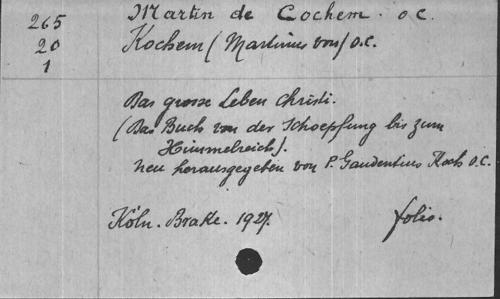 265
20
1
Martin de Cochem. o.c.
Kochem (Martinus von) o.c.
Das grosse Leben Christi.
(Das Buch von der Schoepfung bis zum
Himmelreich).
neu herausgegeben von P. Gaudentius Koch o.c.
Köln. Brake. 1927. folio.